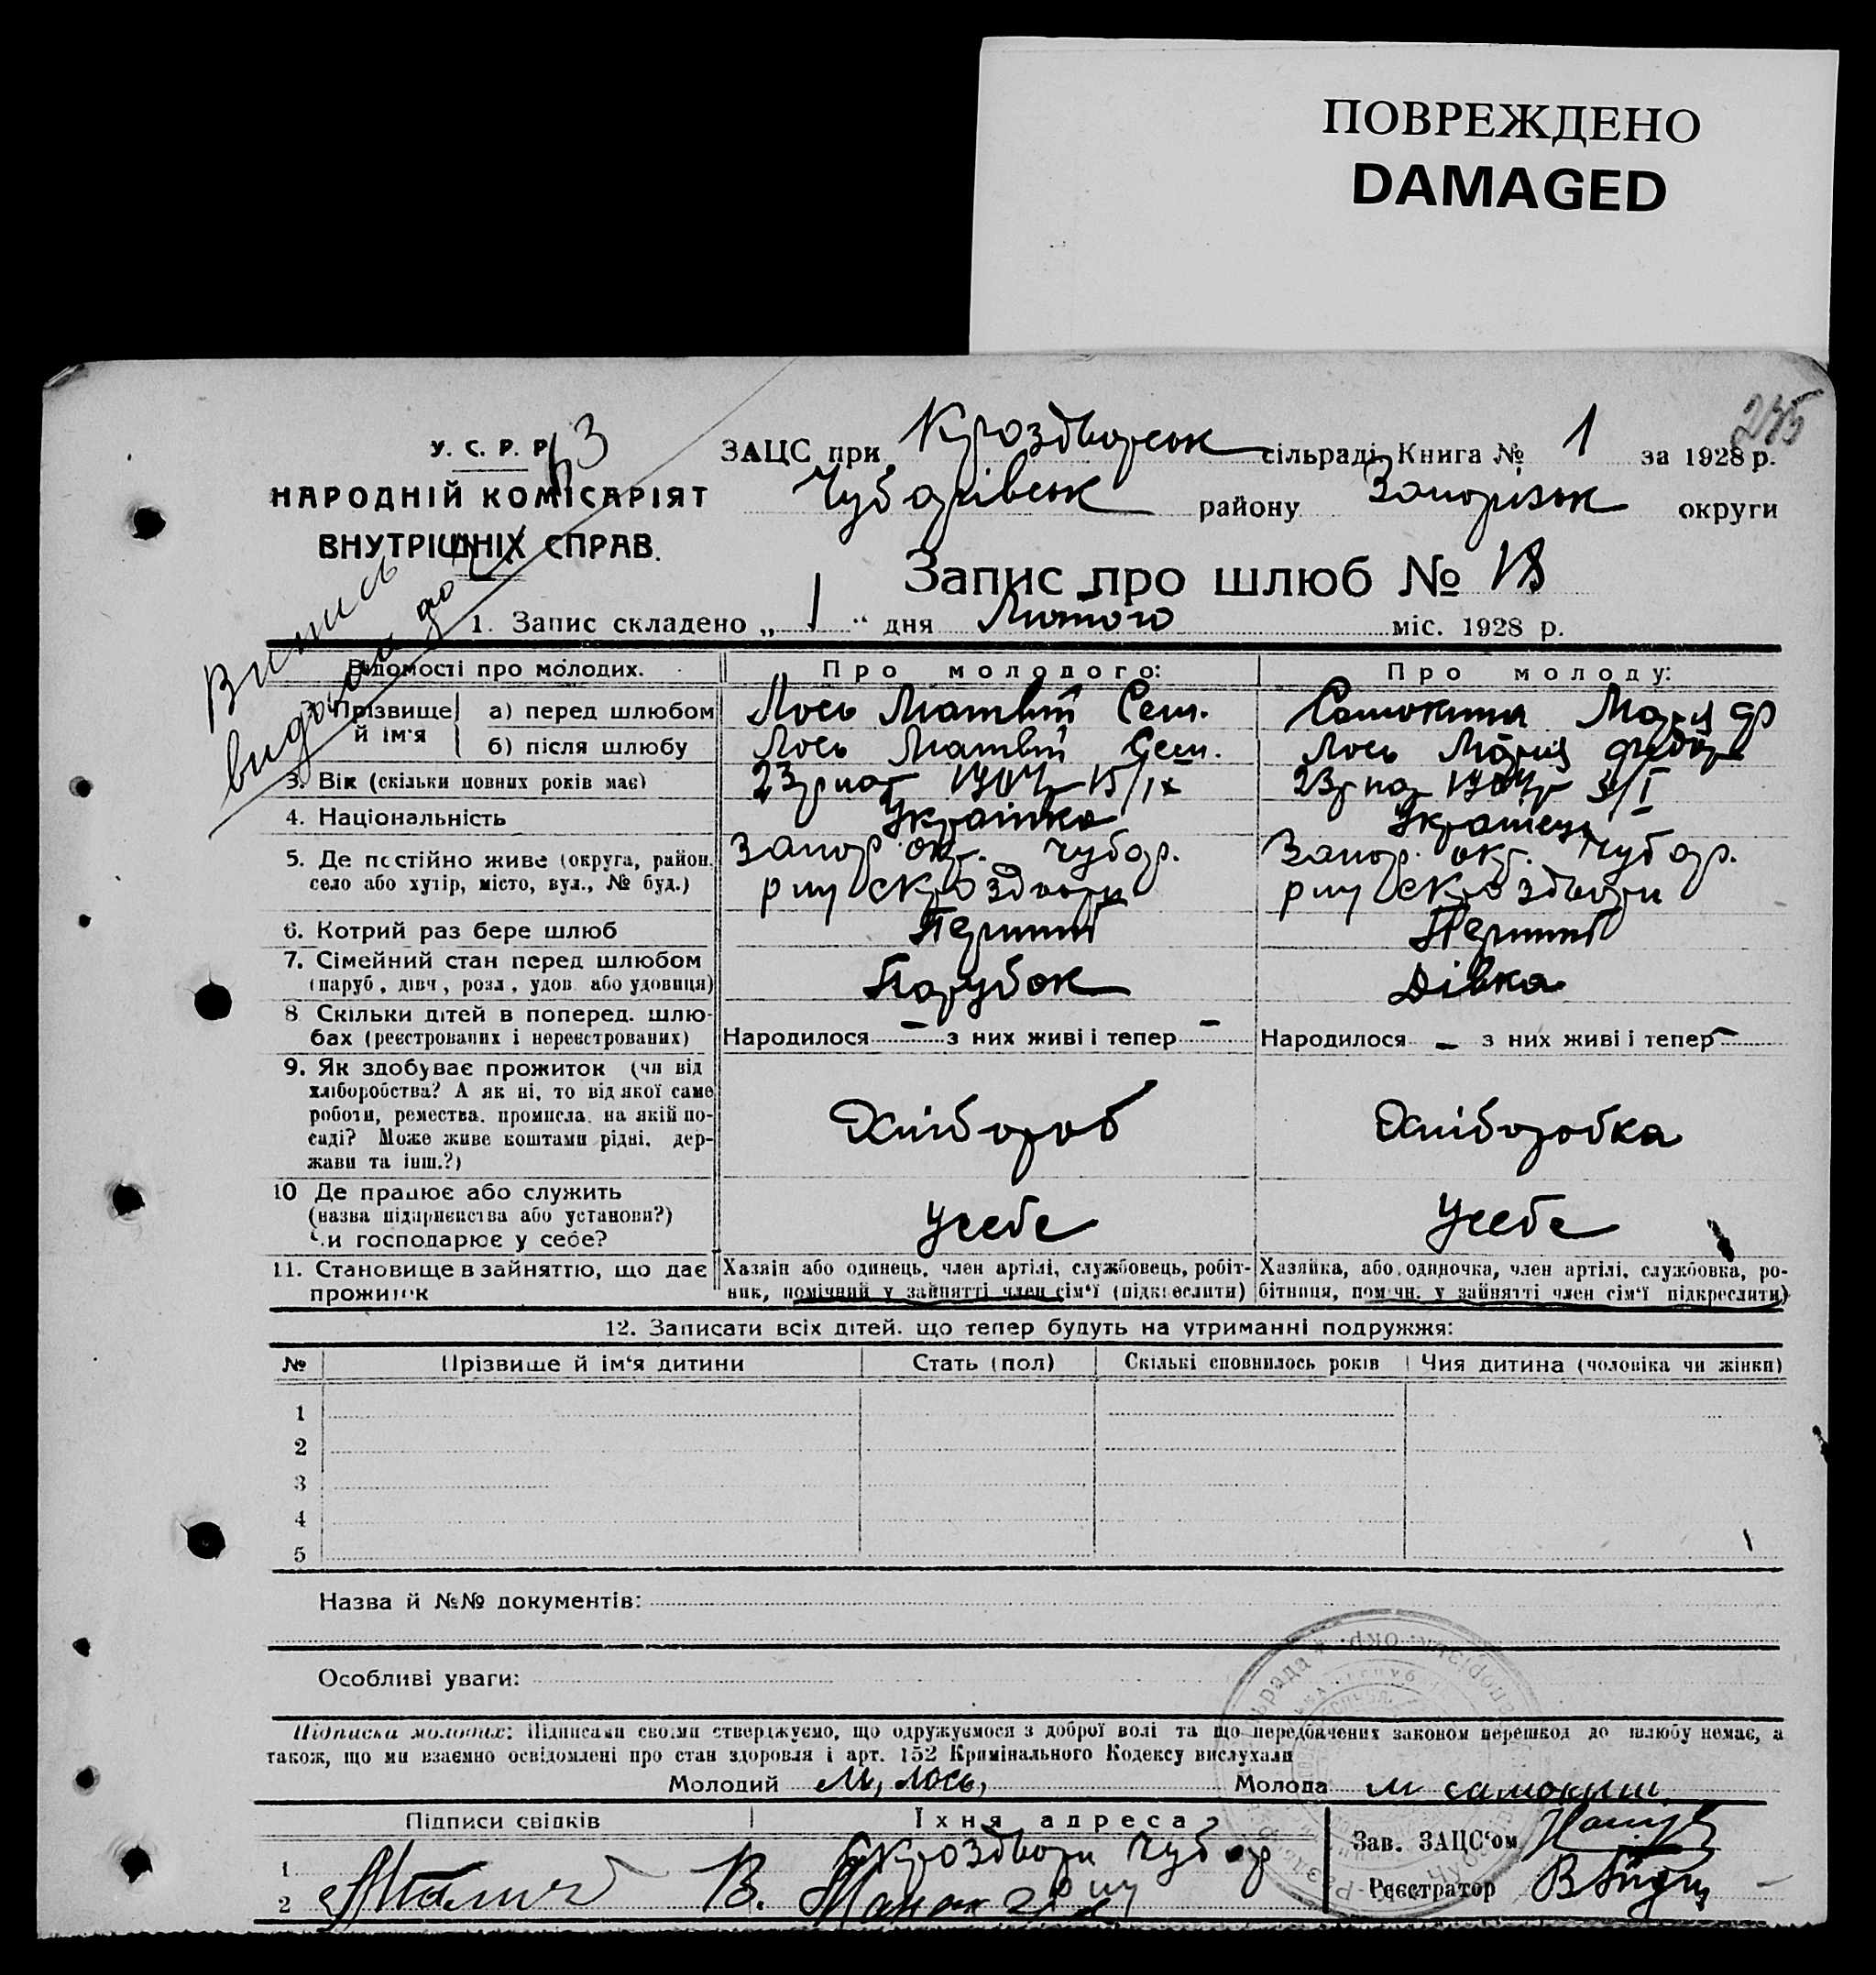 ПОВРЕЖДЕНО
DAMAGED
245
У. С. Р. Р.
НАРОДНІЙ КОМІСАРІЯТ
ВНУТРІШНІХ СПРАВ.
Випись
видана
ЗАЦС при Кроздворськ сільраді Книга № 1 за 1928 р.
Чубарівськ району Запорізьк округи
Запис про шлюб № 18
1. Запис складено „ 1 “ дня Лютого міс. 1928 р.
Відомості про молодих. Про молодого: Про молоду:
Прізвище й ім'я
а) перед шлюбом Лось Матвій Сем. Самокиша Марія Ф
б) після шлюбу Лось Матвій Сем. Лось Марія Федор
3. Вік (скільки повних років має) 23 1904 15/IX 23 1904
4. Національність Українка Українець
5. Де постійно живе (округа, район, село або хутір, місто, вул., № буд.) Запор. окр. Чубар. р-ну с Кроздвори Запор. окр. Чубар. р-ну с Кроздвори
6. Котрий раз бере шлюб Перший Перший
7. Сімейний стан перед шлюбом (паруб., дівч., розл., удов. або удовиця) Парубок Дівка
8. Скільки дітей в поперед. шлюбах (реєстрованих і нереєстрованих) Народилося — з них живі і тепер — Народилося — з них живі і тепер —
9. Як здобуває прожиток (чи від хліборобства? А як ні, то від якої саме роботи, ремества, промисла, на якій посаді? Може живе коштами рідні, держави та інш.?) Хлібороб Хліборобка
10. Де працює або служить (назва підприємства або установи?) Чи господарює у себе? Усебе Усебе
11. Становище в зайняттю, що дає прожиток Хазяїн або одинець, член артілі, службовець, робітник, помічний у зайнятті член сім'ї (підкреслити) Хазяйка, або одиночка, член артілі, службовка, робітниця, помічн. у зайнятті член сім'ї підкреслити)
12. Записати всіх дітей, що тепер будуть на утриманні подружжя:
№ Прізвище й ім'я дитини Стать (пол) Скількі сповнилось років Чия дитина (чоловіка чи жінки)
1
2
3
4
5
Назва й №№ документів:
Особливі уваги:
Підписка молодих: Підписами своїми стверджуємо, що одружуємося з доброї волі та що передбачених законом перешкод до шлюбу немає, а
також, що ми взаємно освідомлені про стан здоровля і арт. 152 Кримінального Кодексу вислухали
Молодий М, лось, Молода М самокиш.
Підписи свідків Їхня адреса Зав. ЗАЦС'ом
1 с Кроздвори Чубар р-ну
2 Реєстратор